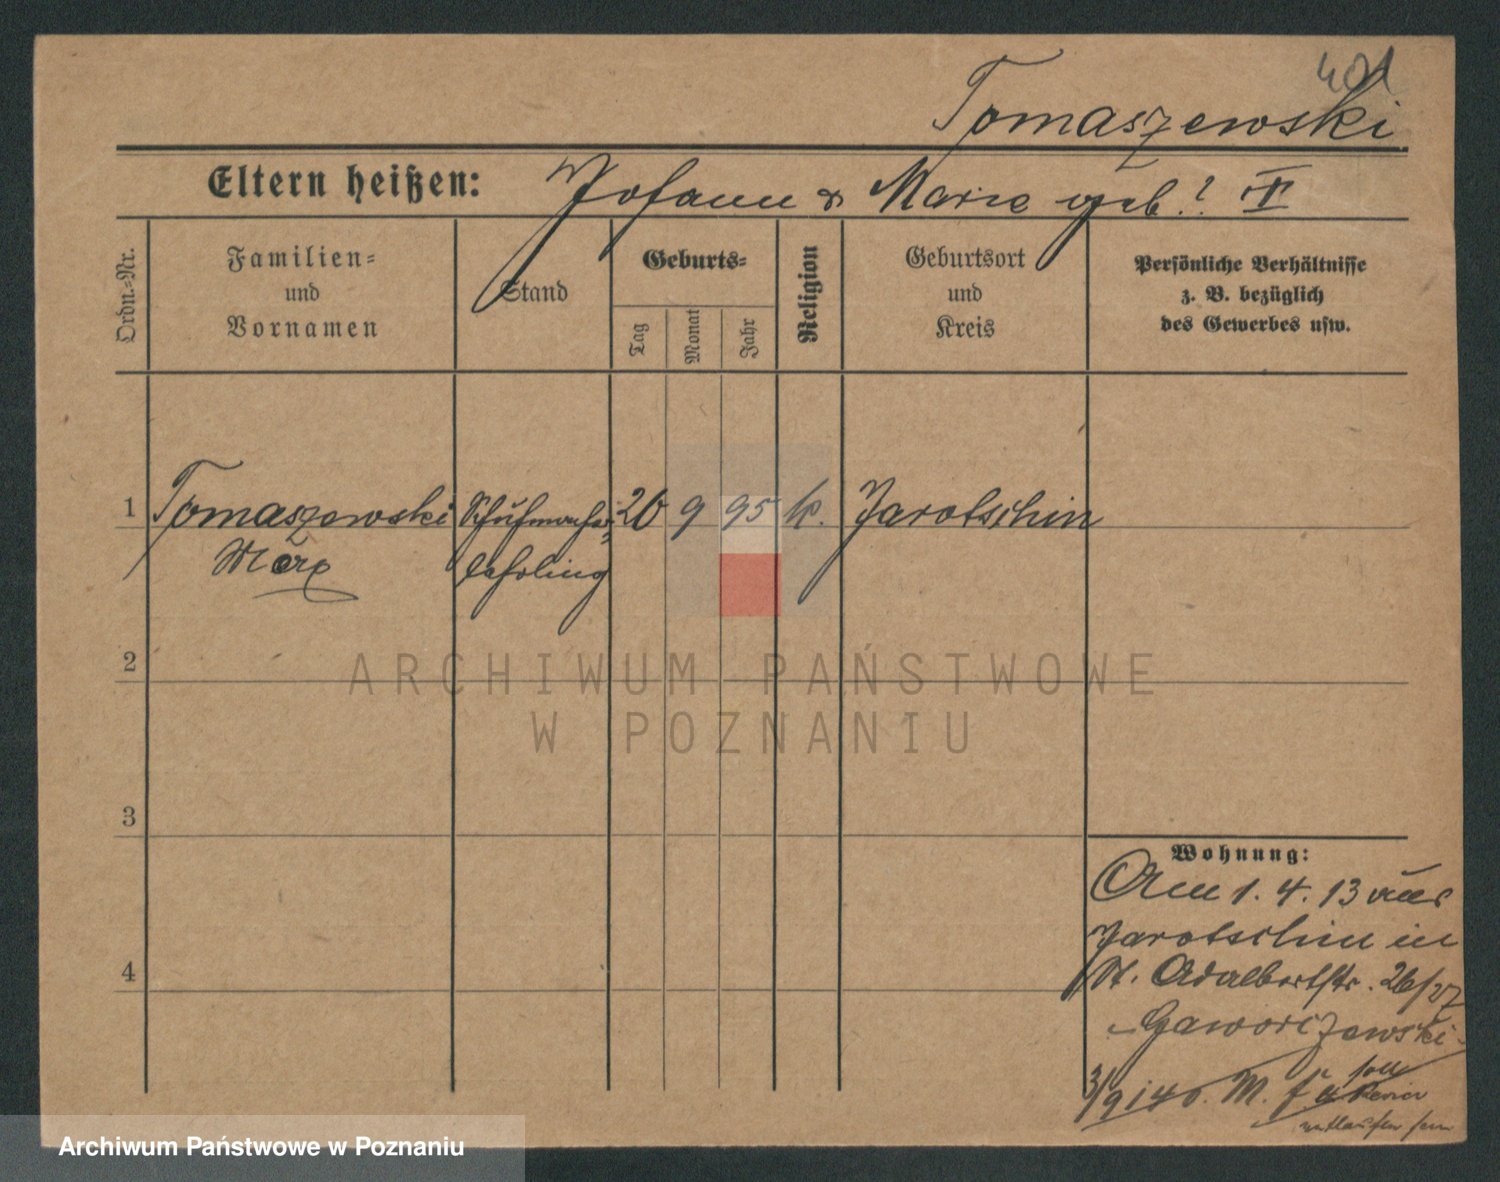 401
Tomaszewski
Eltern heißen: Johann & Marie geb. ? T
Ordn.=Nr.
Familien=
und
Vornamen
Stand
Geburts=
Tag
Monat
Jahr
Religion
Geburtsort
und
Kreis
Persönliche Verhältnisse
z. B. bezüglich
des Gewerbes usw.
1 Tomaszewski Schuhmacher= 20 9 95 k. Jarotschin
Marx lehrling
2
3
4
Wohnung:
Am 1. 4. 13 aus
Jarotschin in
St. Adalbertstr. 26/27
Gaworczewski
soll
M.
entlaufen sein
ARCHIWUM PAŃSTWOWE
W POZNANIU
Archiwum Państwowe w Poznaniu